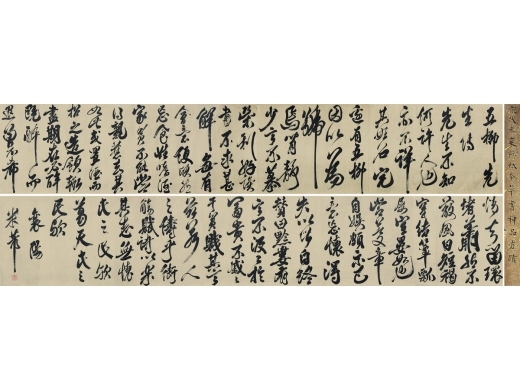 五柳先
生傳
先生不知
何許人也
亦不詳
其姓名宅
因以爲
號
焉閑靜
少言不慕
榮利好讀
書不求甚
解每有
會意便欣然
忘食性嗜酒
家貧不能
如此或置酒而
招之造飲輒
盡期在必
既醉而
退曾不吝
情去留環
堵蕭然不
蔽風日短褐
穿結簞瓢
屢空晏如也
常著文章
自娛頗示己
志忘懷得
失以此自終
贊曰黔婁有
言不汲汲於
富貴不戚戚
于貧賤其言
茲若人
之儔乎銜
觴賦詩以樂
其志無懷
氏之民歟
葛天氏之
民歟
襄陽
米芾